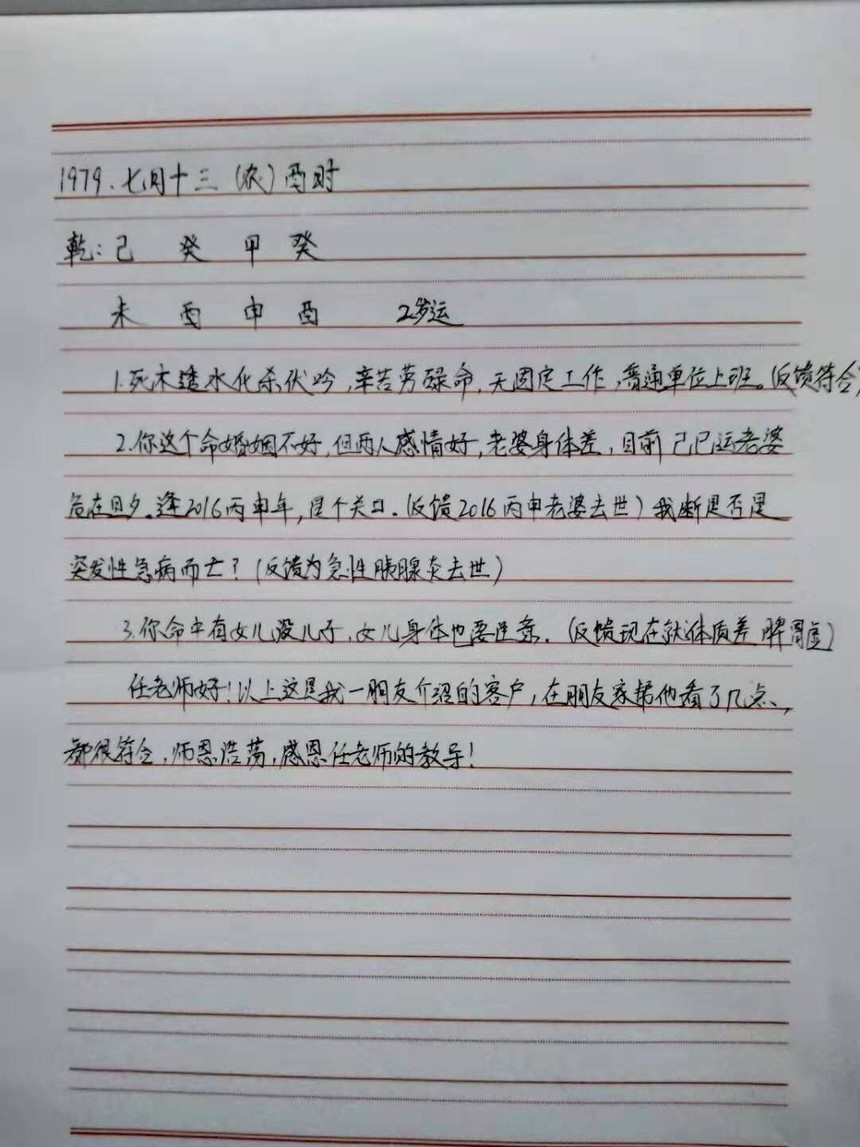 1979.七月十三(农)酉时
乾:己 癸 甲 癸
未 酉 申 酉 2岁运
1.死木逢水化杀伏吟,辛苦劳碌命,无固定工作,普通单位上班。(反馈符合)
2.你这个命婚姻不好,但两人感情好,老婆身体差,目前己巳运老婆
危在旦夕。逢2016丙申年,是个关口.(反馈2016丙申老婆去世)我断是否是
突发性急病而亡?(反馈为急性胰腺炎去世)
3.你命中有女儿没儿子,女儿身体也要注意.(反馈现在就体质差 脾胃虚)
任老师好!以上这是我一朋友介绍的客户,在朋友家帮他看了几点,
都很符合,师恩浩荡,感恩任老师的教导!